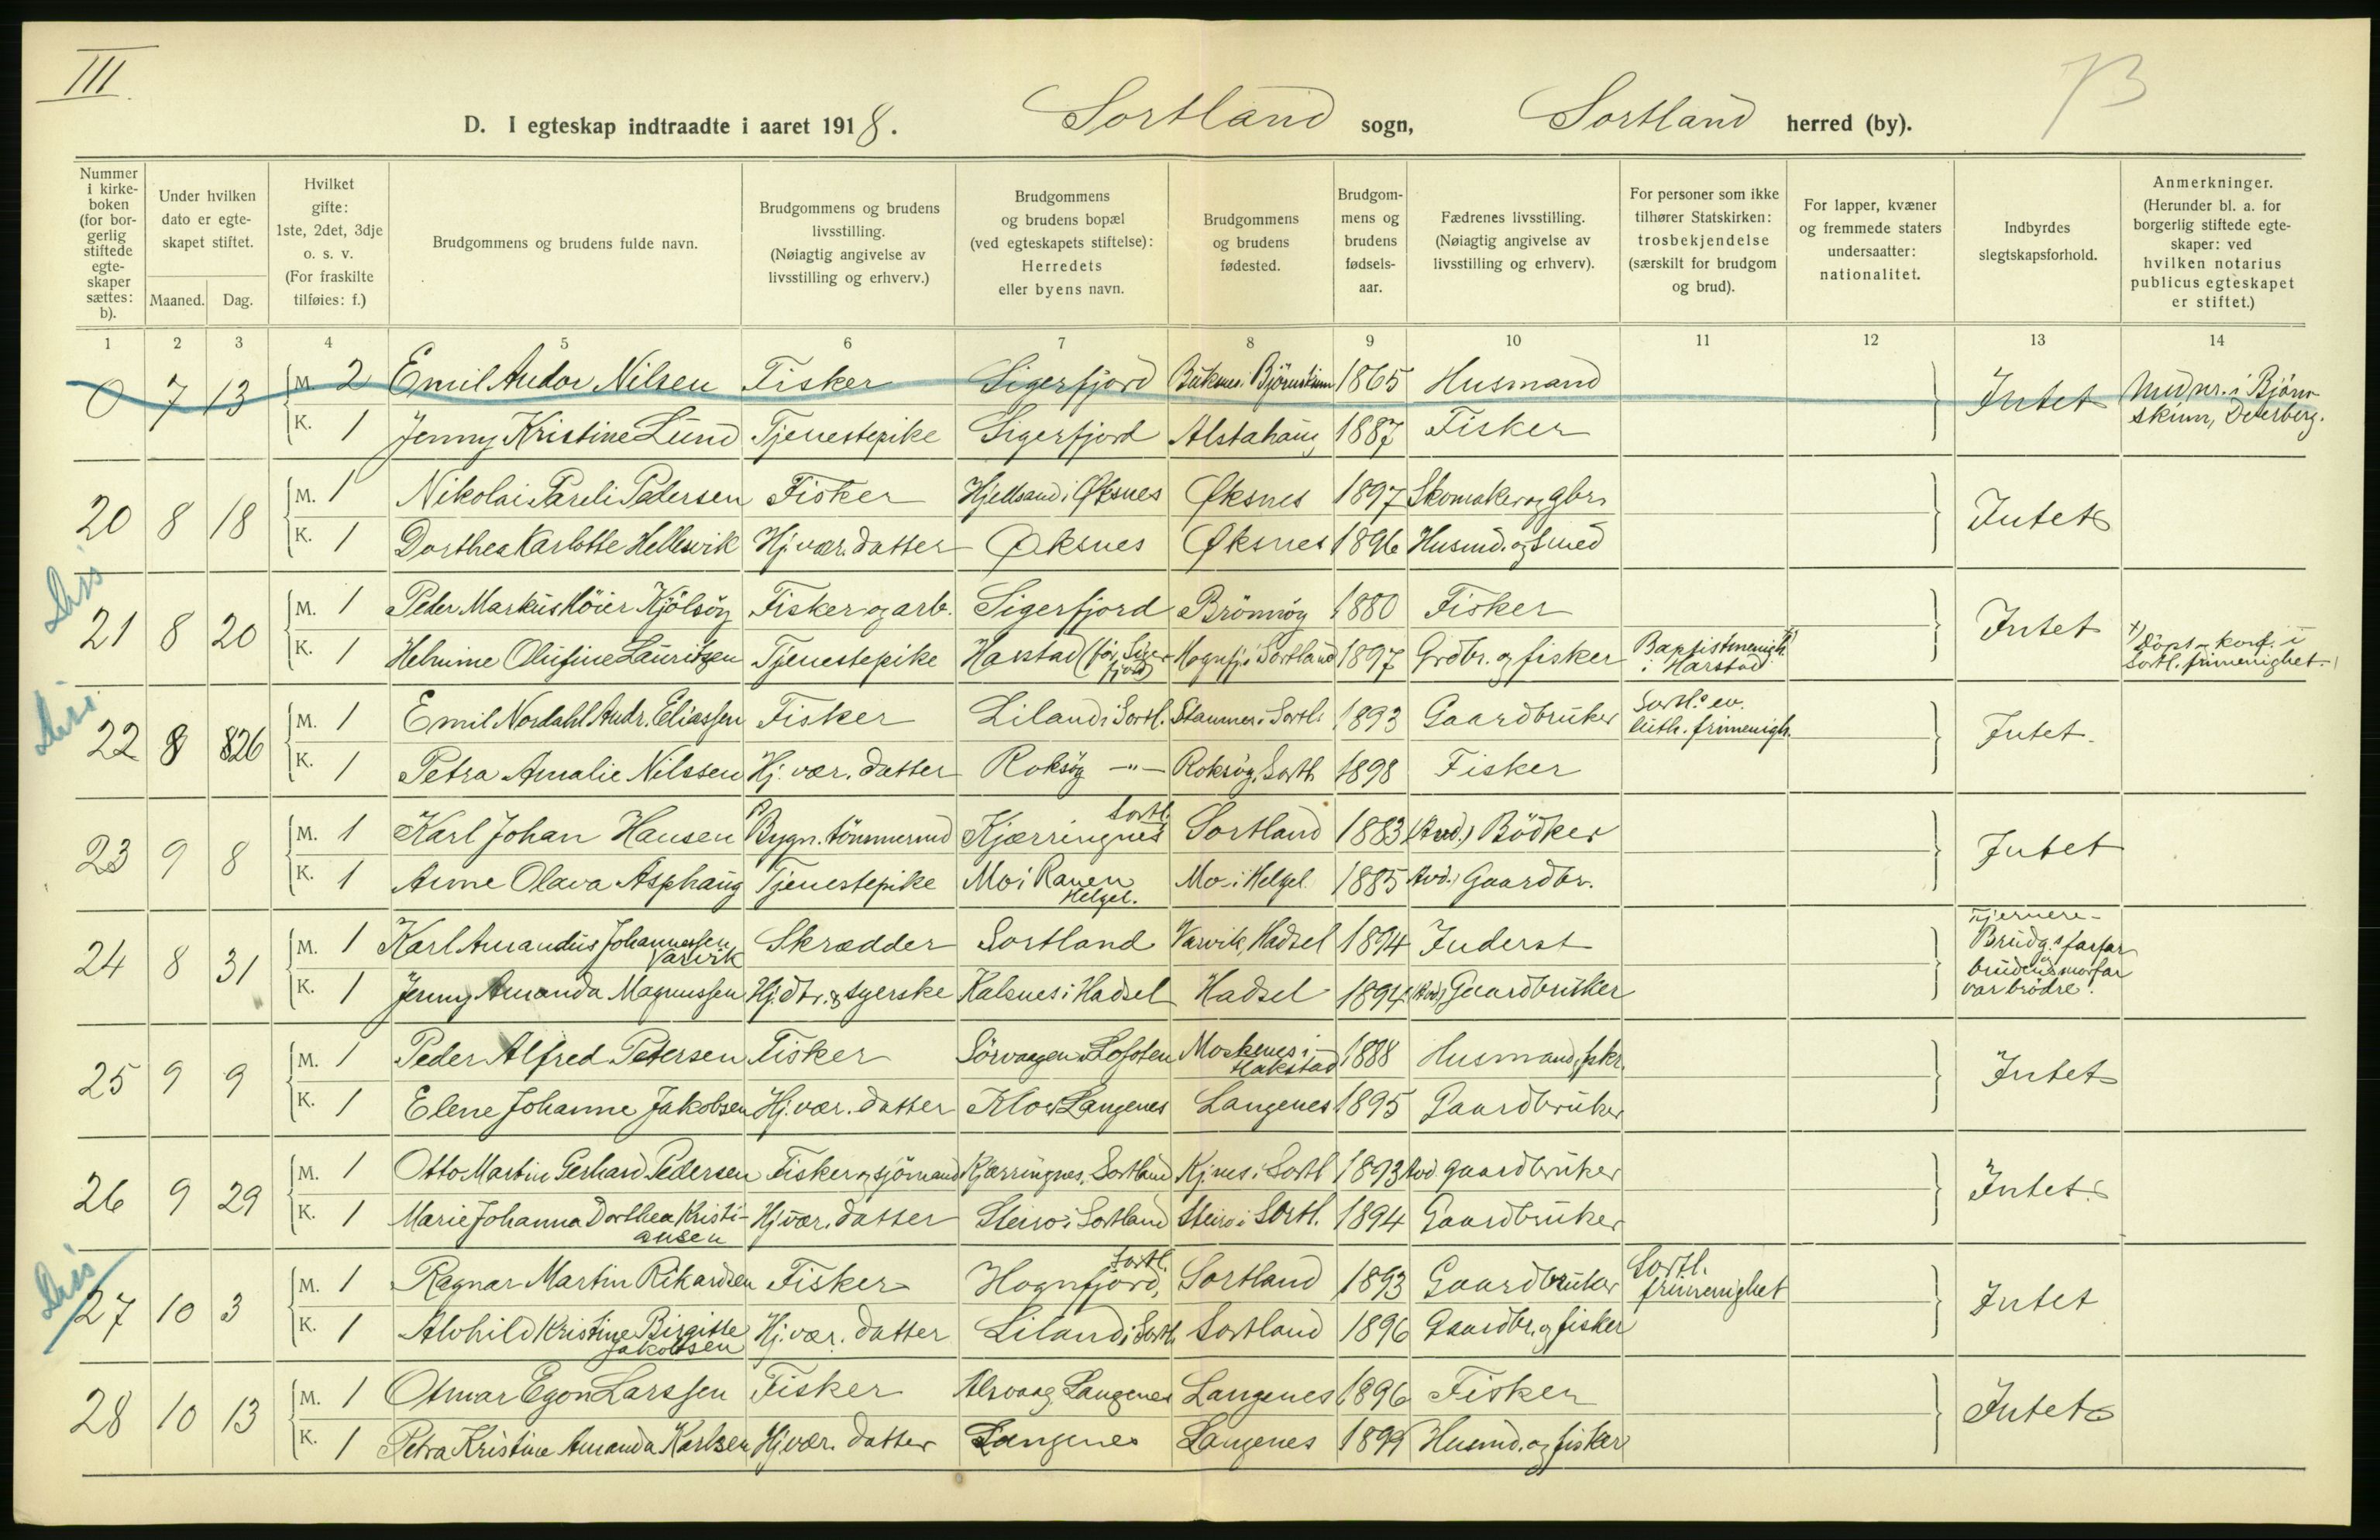 III
D. I egteskap indtraadte i aaret 1918. Sortland sogn, Sortland herred (by).
Nummer i kirke-boken (for bor-gerlig stiftede egte-skaper sættes: b).
Under hvilken dato er egte-skapet stiftet.
Maaned. Dag.
Hvilket gifte: 1ste, 2det, 3dje o. s. v. (For fraskilte tilføies: f.)
Brudgommens og brudens fulde navn.
Brudgommens og brudens livsstilling. (Nøiagtig angivelse av livsstilling og erhverv.)
Brudgommens og brudens bopæl (ved egteskapets stiftelse): Herredets eller byens navn.
Brudgommens og brudens fødested.
Brudgom-mens og brudens fødsels-aar.
Fædrenes livsstilling. (Nøiagtig angivelse av livsstilling og erhverv).
For personer som ikke tilhører Statskirken: trosbekjendelse (særskilt for brudgom og brud).
For lapper, kvæner og fremmede staters undersaatter: nationalitet.
Indbyrdes slegtskapsforhold.
Anmerkninger. (Herunder bl. a. for borgerlig stiftede egte-skaper: ved hvilken notarius publicus egteskapet er stiftet.)
1 2 3 4 5 6 7 8 9 10 11 12 13 14
0 7 13 M. 2 Emil Andor Nilsen Fisker Sigerfjord Buksnes i Björnskinn 1865 Husmand Intet i Björn-
K. 1 Jenny Kristine Lund Tjenestepike Sigerfjord Alstahaug 1887 Fisker skinn,
20 8 18 M. 1 Nikolai Pareli Pedersen Fisker Hjellsand i Øksnes Øksnes 1897 Skomaker og gbr. Intet
K. 1 Dorthea Karlotte Hellesvik Hj. vær. datter Øksnes Øksnes 1896 Husmd. og smed
Diss
21 8 20 M. 1 Peder Markus Höier Kjölsöy Fisker og arb. Sigerfjord Brönnöy 1880 Fisker Intet
K. 1 Helmine Olufine Lauritzen Tjenestepike Harstad (för Siger-fjord) Hognfj. i Sortland 1897 Grdbr. og fisker Baptistmenigh. i Harstad x) Döpt og konf. i Sortl. frimenighet.
Diss
22 8 26 M. 1 Emil Nordahl Andr. Eliassen Fisker Liland i Sortl. Stamnes i Sortl. 1893 Gaardbruker Sortl. ev. luth. frimenigh. Intet.
K. 1 Petra Amalie Nilssen Hj. vær. datter Roksöy -"- Roksöy, Sortl. 1898 Fisker
23 9 8 M. 1 Karl Johan Hansen Bygn. tömmermd Kjærringnes Sortl. Sortland 1883 (Avd.) Bödker Intet
K. 1 Anne Olava Asphaug Tjenestepike Mo i Ranen Helgel. Mo i Helgel. 1885 Avd. Gaardbr.
24 8 31 M. 1 Karl Amandus Johannessen Varvik Skrædder Sortland Varvik, Hadsel 1894 Inderst Brudg.s farfar og brudens morfar var brödre.
K. 1 Jenny Amanda Magnussen Hj. dtr. & syerske Kalsnes i Hadsel Hadsel 1894 (Avd.) Gaardbruker
25 9 9 M. 1 Peder Alfred Petersen Fisker Sörvaagen i Lofoten Moskenes i Hakstad 1888 Husmand, fskr. Intet
K. 1 Elene Johanne Jakobsen Hj. vær. datter Klo i Langenes Langenes 1895 Gaardbruker
26 9 29 M. 1 Otto Martin Gerhard Pedersen Fisker og sjömand Kjærringnes, Sortland Kj.nes i Sortl 1893 Avd gaardbruker Intet.
K. 1 Marie Johanna Dorthea Kristi-ansen Hj. vær. datter Steiro i Sortland Steiro i Sortl. 1894 Gaardbruker
Diss
27 10 3 M. 1 Ragnar Martin Rikardsen Fisker Hognfjord, Sortl. Sortland 1893 Gaardbruker Sortl. frimenighet Intet
K. 1 Alvhild Kristine Birgitte Jakobsen Hj. vær. datter Liland i Sortl. Sortland 1896 Gaardbr. og fisker
28 10 13 M. 1 Otmar Egon Larssen Fisker Alsvaag, Langenes Langenes 1896 Fisker Intet
K. 1 Petra Kristine Amanda Karlsen Hj. vær. datter Langenes Langenes 1899 Husmd. og fisker